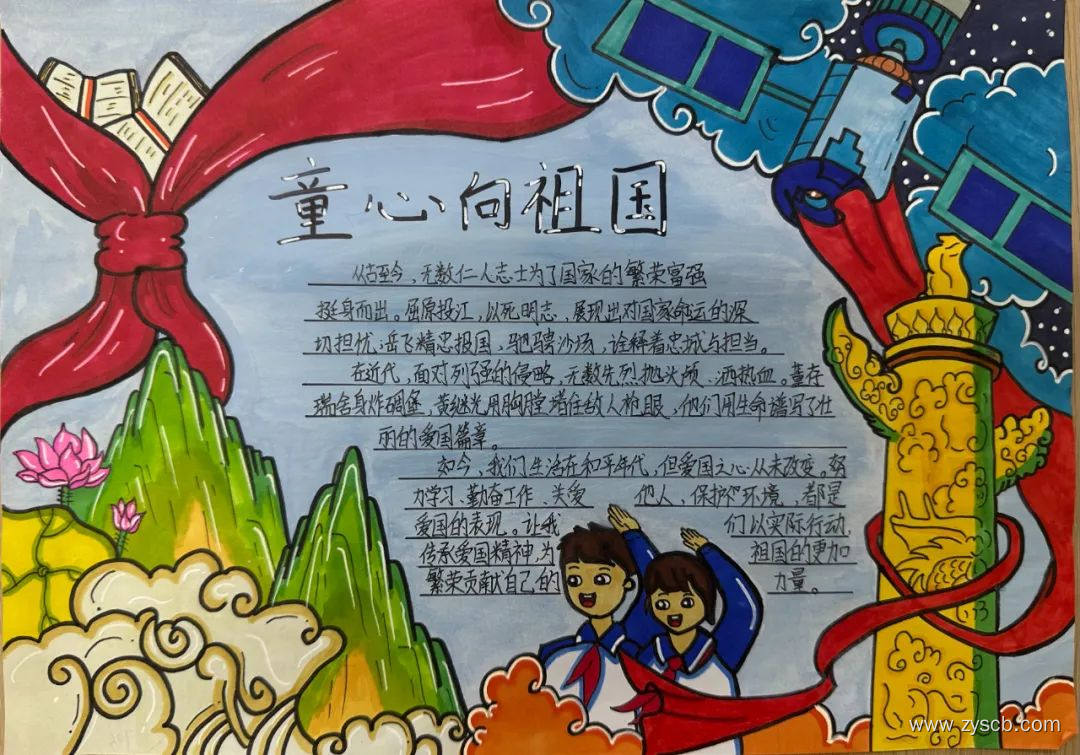 童心向祖国
从古至今，无数仁人志士为了国家的繁荣富强
挺身而出。屈原投江，以死明志，展现出对国家命运的深
切担忧；岳飞精忠报国，驰骋沙场，诠释着忠诚与担当。
在近代，面对列强的侵略，无数先烈抛头颅、洒热血。董存
瑞舍身炸碉堡，黄继光用胸膛堵住敌人枪眼，他们用生命谱写了壮
丽的爱国篇章。
如今，我们生活在和平年代，但爱国之心从未改变。努
力学习、勤奋工作、关爱他人，保护环境，都是
爱国的表现。让我们以实际行动，
传承爱国精神为祖国的更加
繁荣贡献自己的力量。
www.zyscb.com